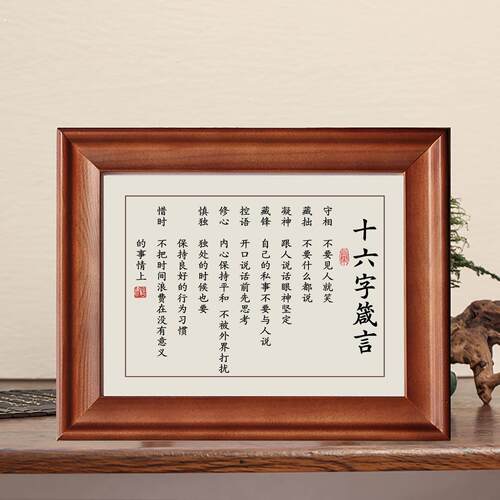 十六字箴言
守相 不要见人就笑
藏拙 不要什么都说
凝神 跟人说话眼神坚定
藏锋 自己的私事不要与人说
控语 开口说话前先思考
修心 内心保持平和 不被外界打扰
慎独 独处的时候也要
保持良好的行为习惯
惜时 不把时间浪费在没有意义
的事情上